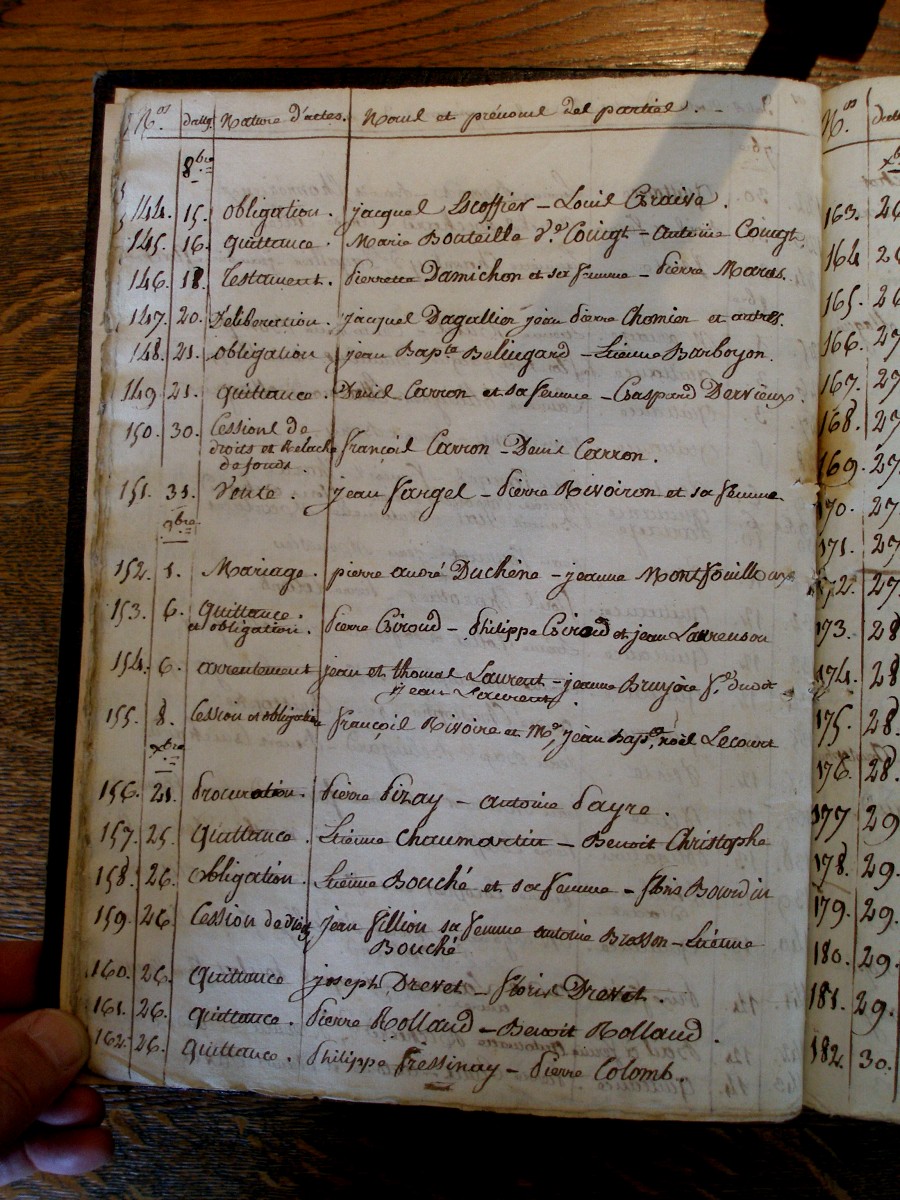 Nos dattes Nature d'actes. Noms et prénoms des parties.
8bre
144. 15. obligation. jacques Escoffier – Louis Graive.
145. 16. quittance. Marie Bouteille d.e Cougt – Antoine Cougt.
146. 18. Testament. pierrette Damichon et sa femme – pierre Maras.
147. 20. Deliberation. jacques Dagallier jean pierre Chomien et autres.
148. 21. obligation jean Bapte Bellingard – Etienne Barboyon.
149 21. quittance. Denis Carron et sa femme – Gaspard Dervieux.
150. 30. Cessions de
droits et Relache françois Carron – Denis Carron.
de fonds.
151. 31. Vente. jean fargel – pierre Rivoiron et sa femme
9bre
152. 1. Mariage. pierre andré Duchène – jeanne Montfouilloux
153. 6. Quittance.
et obligation. pierre Giroud – philippe Giroud et jean Laurenson
154. 6. arrentement jean et thomas Laurent – jeanne Bruyère
jean Laurent
155. 8. Cession et obligation françois Rivoire et Me jean Bapte noël Lecourt
xbre
156. 21. procuration. pierre pizay – antoine payre.
157. 25. quittance. Etienne Chaumartin – Benoit Christophe
158. 26. obligation. Etienne Bouché et sa femme – floris Bourdin
159. 26. Cession de droits jean fillion sa femme antoine Brasson – Etienne
Bouché
160. 26. quittance joseph Drevet – floris Drevet.
161. 26. quittance. pierre Rolland – Benoit Rolland.
162. 26. quittance. philippe fressinay – pierre Colomb.
Nos
xbre
163. 26
164 26
165. 26
166. 27
167. 27
168. 27
169. 27.
170. 27.
171. 27
172. 27.
173. 28
174. 28
175. 28.
176. 28.
177 29
178. 29.
179. 29.
180. 29.
181. 29.
182. 30.